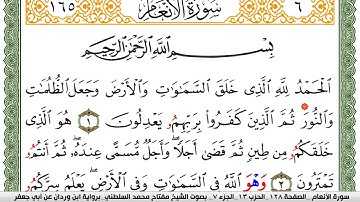 ١٦٥ سورة الأنعام ٦
بِسْمِ اللَّهِ الرَّحْمَٰنِ الرَّحِيمِ
الْحَمْدُ لِلَّهِ الَّذِي خَلَقَ السَّمَٰوَٰتِ وَالْأَرْضَ وَجَعَلَ الظُّلُمَٰتِ
وَالنُّورَ ثُمَّ الَّذِينَ كَفَرُوا بِرَبِّهِمُ يَعْدِلُونَ ١ هُوَ الَّذِي
خَلَقَكُمُ مِن طِينٍ ثُمَّ قَضَىٰ أَجَلًا وَأَجَلٌ مُسَمًّى عِندَهُ ثُمَّ أَنتُمُ
تَمْتَرُونَ ٢ وَهْوَ اللَّهُ فِي السَّمَٰوَٰتِ وَفِي الْأَرْضِ يَعْلَمُ سِرَّكُمُ
سورة الأنعام الصفحة ١٢٨ الحزب ١٣ الجزء ٧ بصوت الشيخ مفتاح محمد السلطني برواية ابن وردان عن أبي جعفر